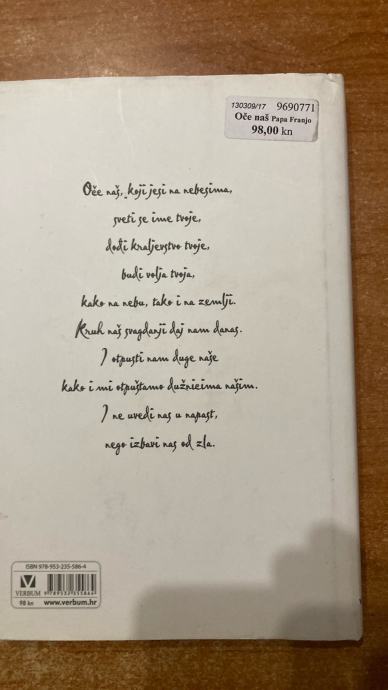 130309/17 9690771
Oče naš Papa Franjo
98,00 kn
Oče naš, koji jesi na nebesima,
sveti se ime tvoje,
dođi kraljevstvo tvoje,
budi volja tvoja,
kako na nebu, tako i na zemlji.
Kruh naš svagdanji daj nam danas.
I otpusti nam duge naše
kako i mi otpuštamo dužnicima našim.
I ne uvedi nas u napast,
nego izbavi nas od zla.
ISBN 978-953-235-586-4
VERBUM
9789532355864
98 kn www.verbum.hr